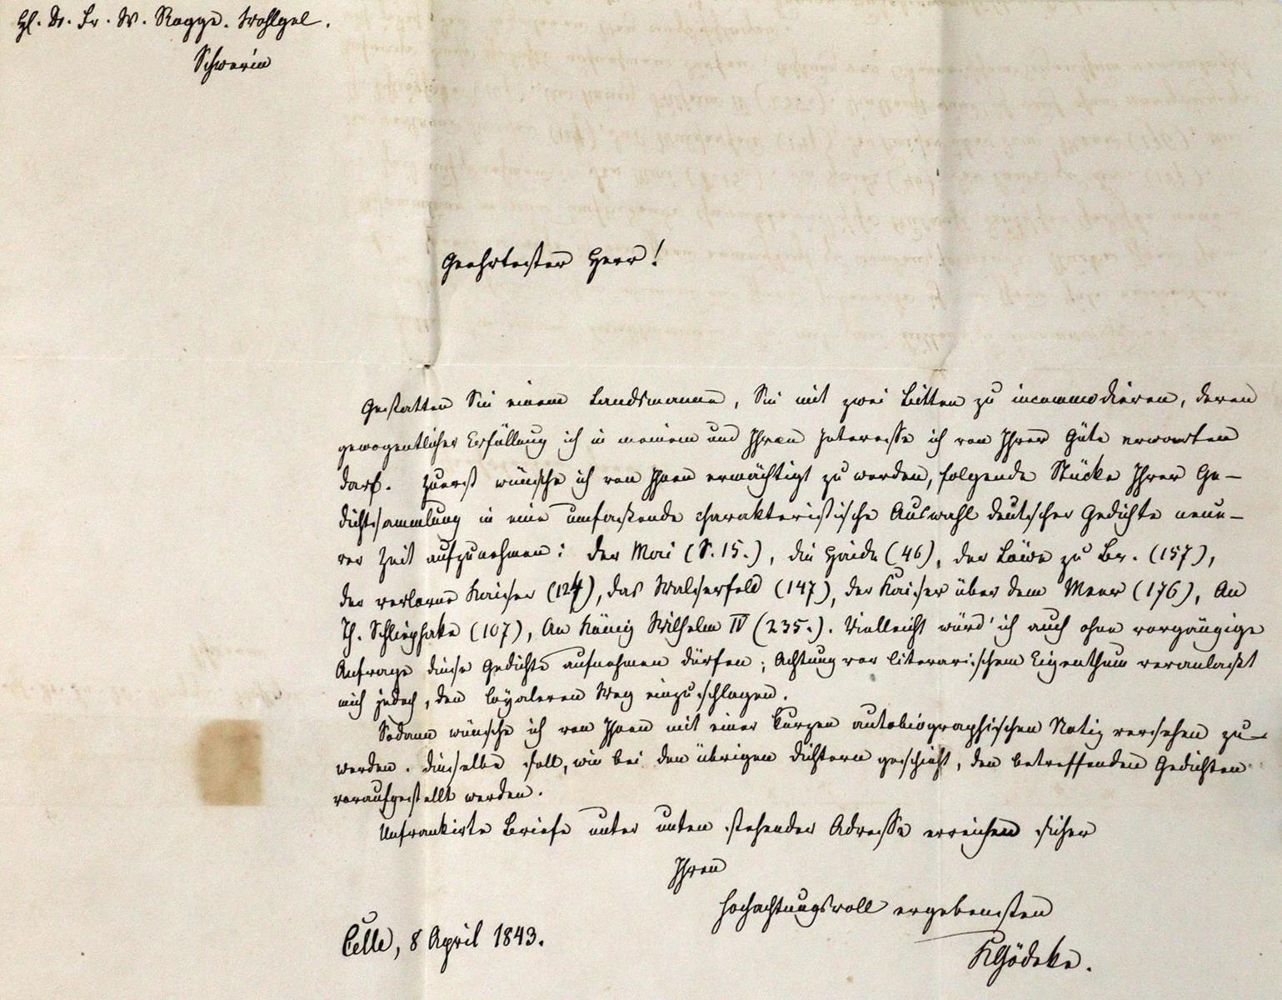 H. Dr. Fr. W. Rogge. Wohlgel.
Schwerin
Geehrtester Herr!
Gestatten Sie einem Landsmanne, Sie mit zwei Bitten zu incommodieren, deren
gewogentliche Erfüllung ich in meinem und Ihrem Interesse ich von Ihrer Güte erwarten
darf. Zuerst wünsche ich von Ihnen ermächtigt zu werden, folgende Stücke Ihrer Ge-
dichtsammlung in eine umfassende charakteristische Auswahl deutscher Gedichte neue-
rer Zeit aufzunehmen: der Mai (S. 15.), die Haide (46), der Löwe zu Br. (157),
der verlorne Kaiser (124), das Walserfeld (147), der Kaiser über dem Meer (176), An
Th. Schliephake (107), An König Wilhelm IV (235.). Vielleicht würd' ich auch ohne vorgängige
Anfrage diese Gedichte aufnehmen dürfen; Achtung vor literarischem Eigenthum veranlaßt
mich jedoch, den loyaleren Weg einzuschlagen.
Sodann wünsche ich von Ihnen mit einer kurzen autobiographischen Notiz versehen zu
werden. Dieselbe soll, wie bei den übrigen Dichtern geschieht, den betreffenden Gedichten
voraufgestellt werden.
Unfrankirte Briefe unter unten stehender Adresse erreichen sicher
Ihren
hochachtungsvoll ergebensten
Celle, 8 April 1843.
KGödeke.